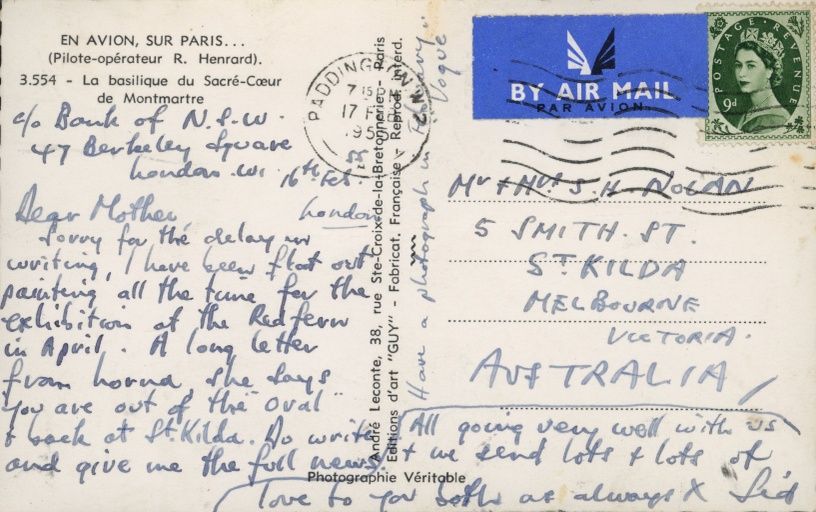 EN AVION, SUR PARIS...
(Pilote-opérateur R. Henrard).
3.554 - La basilique du Sacré-Cœur
de Montmartre
c/o Bank of N.S.W.
47 Berkeley Square
London. W1.
16th Feb. 55
London
Dear Mother,
Sorry for the delay in
writing, I have been flat out
painting all the time for the
exhibition at the Redfern
in April. A long letter
from , she says
you are out of the "Oval"
+ back at St. Kilda. Do write
and give me the full news.
All going very well with us
+ we send lots + lots of
love to you both as always X Sid
Have a photograph in "February"
"Vogue"
PADDINGTON W2
7 15
17 FEB
195
André Leconte, 38, rue Ste-Croix-de-la-Bretonnerie - Paris
Editions d'art "GUY" - Fabricat. Française - Reprod. Interd.
Photographie Véritable
BY AIR MAIL
PAR AVION
POSTAGE REVENUE
9d
Mr + Mrs S. H. NOLAN
5 SMITH. ST.
ST. KILDA
MELBOURNE
VICTORIA.
AUSTRALIA